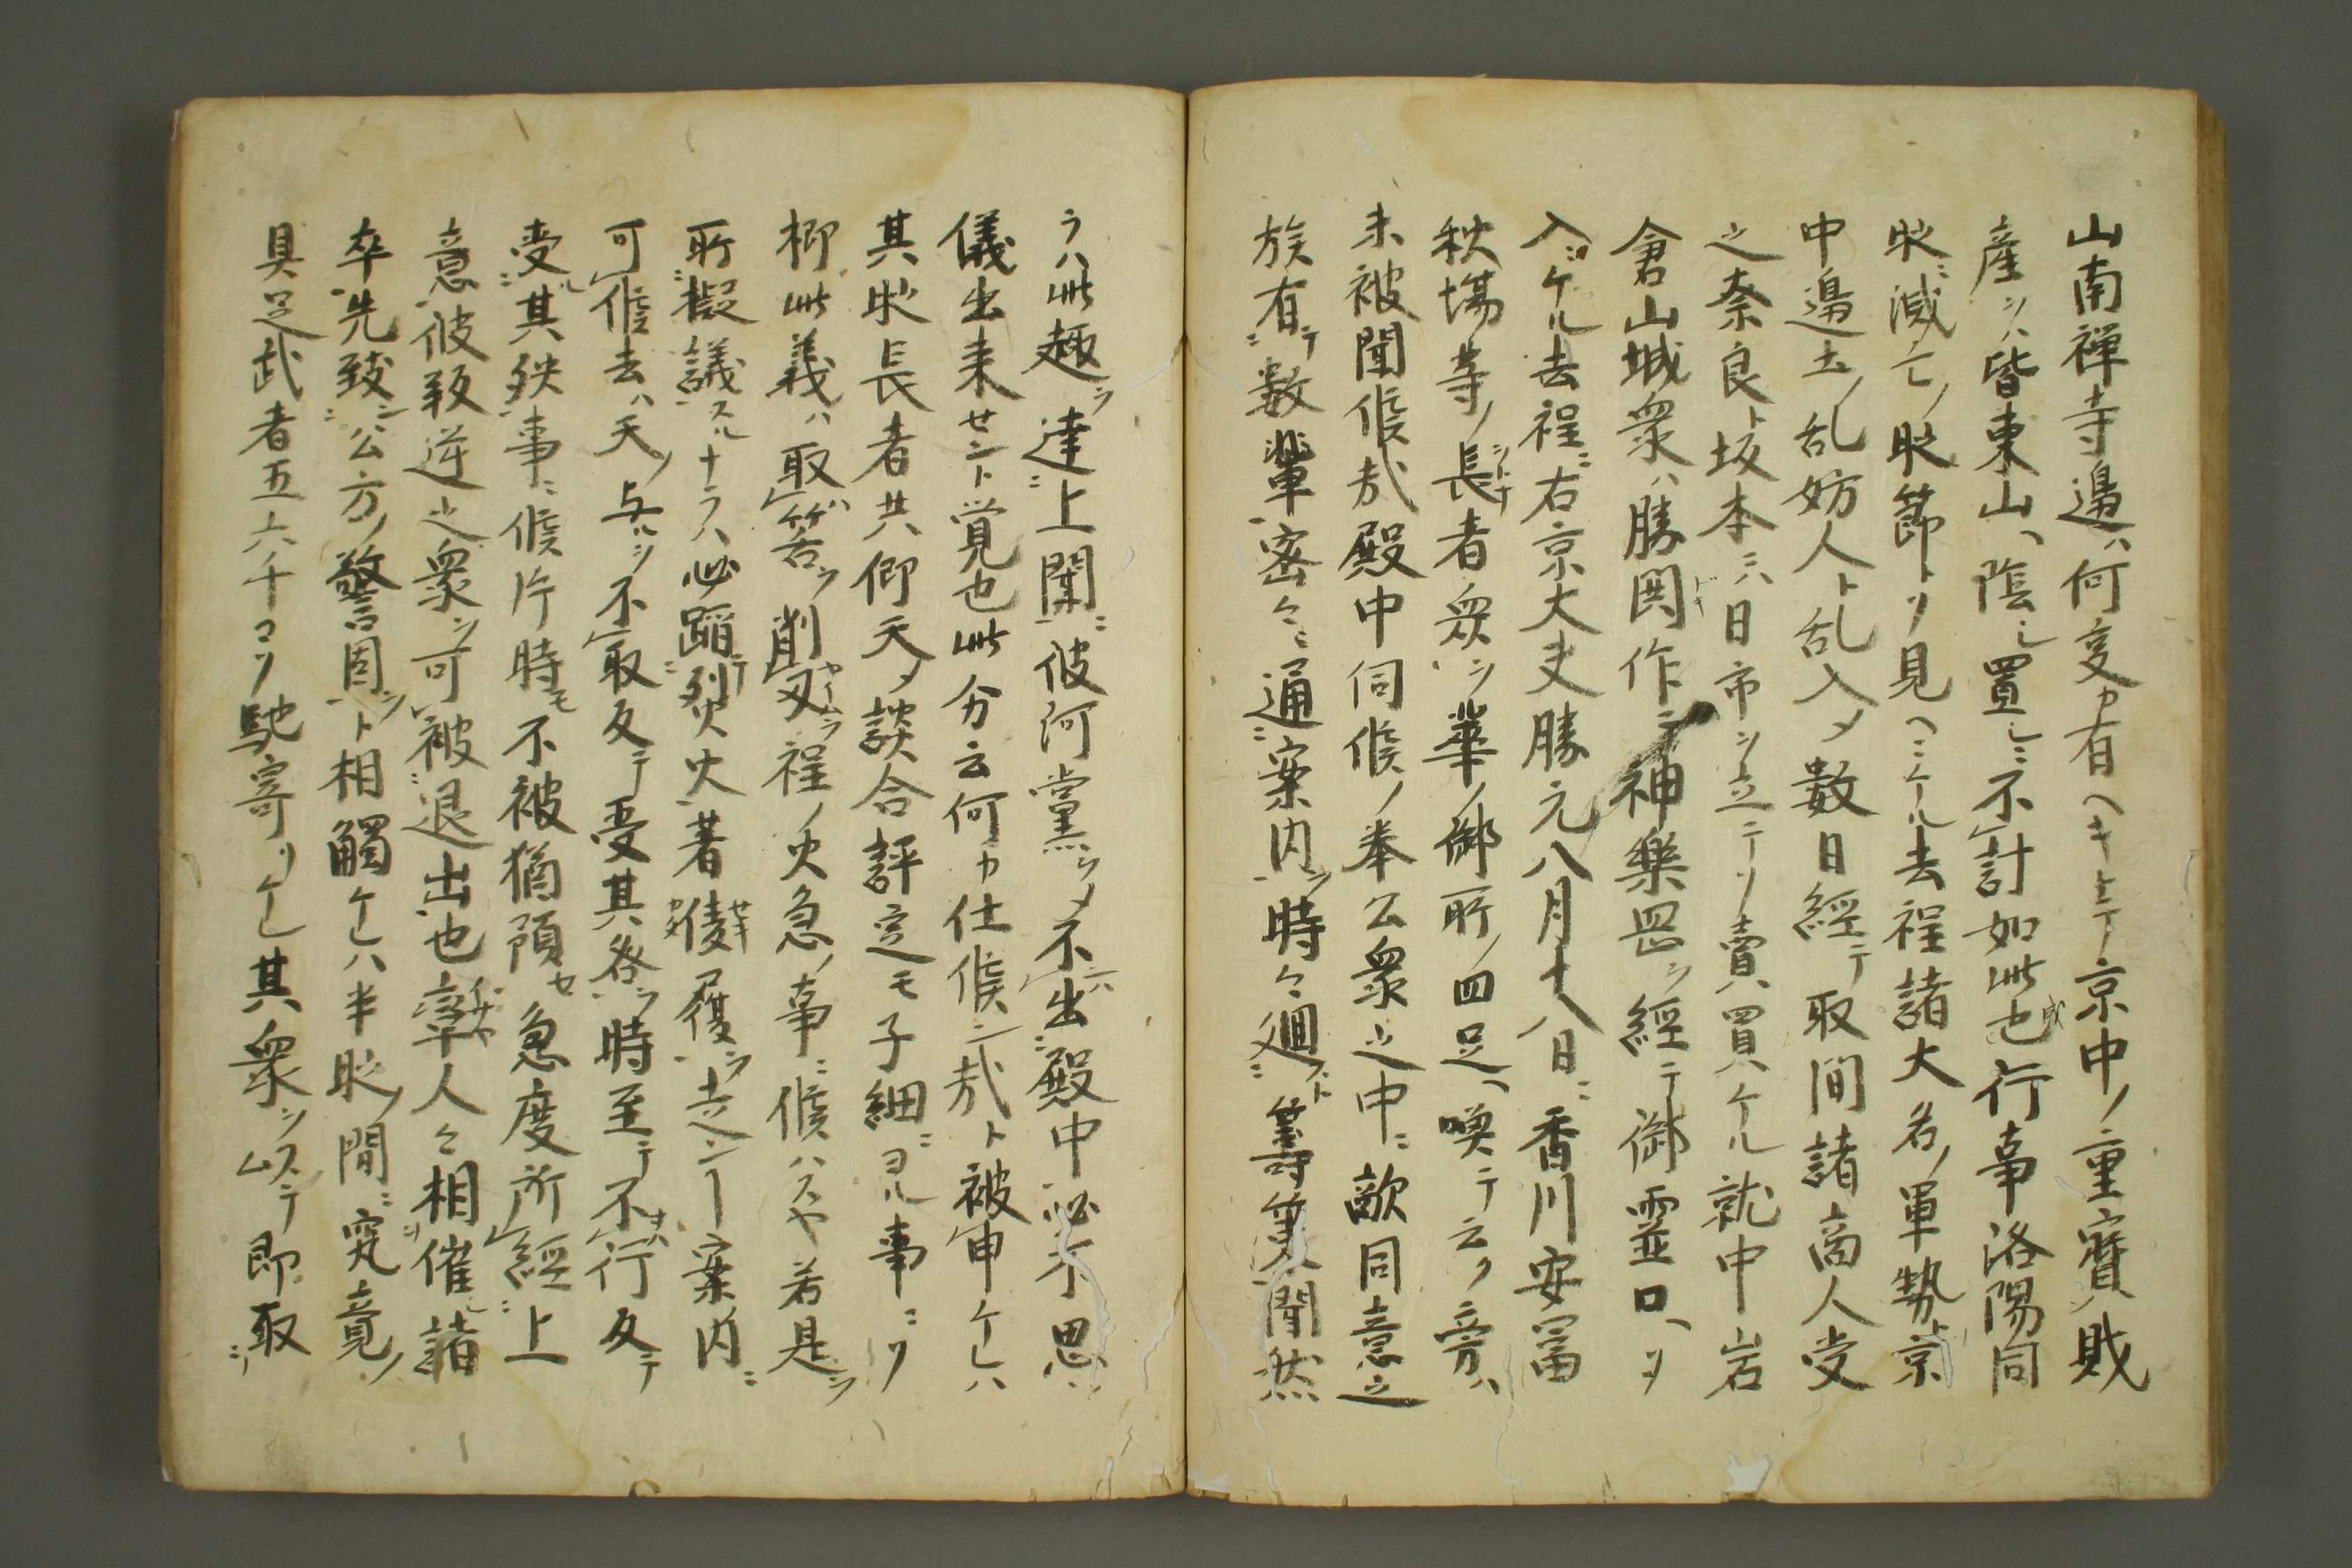 山南禅寺邊ハ何変カ有ヘキトテ京中ノ重寶財
産ヲハ皆東山ノ陰ニ置シニ不計如此成也行事洛陽同
時ニ滅亡ノ時節トソ見ヘニケル去程諸大名ノ軍勢ト京
中邊土ノ乱妨人ト乱入メ数日經テ取間諸商人受
之奈良ト坂本ニハ日市ヲ立テソ賣買ケル就中岩
倉山城衆ハ勝閧作テ神樂岡ヲ經テ御霊口ヘソ
入ニケル去程ニ右京大夫勝元八月十八日ニ香川安冨
秋場等ノ長者衆ヲ華ノ御所ノ四足ヘ喚テ云ク旁ハ
未被聞候哉殿中伺候ノ奉公衆之中ニ敵同意之
族有テ数輩密々ニ通案内ヲ時々廻ストト籌策聞然
ラハ此趣ヲ達上聞ニ彼何黨ヲメ不出殿中ニ必不思
儀出来セント覚也此分云何カ仕候ハン哉ト被申ケレハ
其時長者共仰天メ談合評定モ子細ニヨル事ニソ
柳此義ハ取筈ヲ削刄ヲ程ノ火急ノ事ニ候ハスヤ若是ヲ
所擬議スルナラハ必蹈烈火著儘履ヲ走ンニ案内ニ
可候去ハ天ノ与ルヲ不取反テ受其咎ヲ時至テ不行反テ
受其殃事ニ候片時モ不被猶預セ急度所經上
意彼叛逆之衆ヲ可被退出也率人々相催諸
卒先致公方ノ警固ヲト相觸ケレハ半時ノ間ニ究竟ノ
具足武者五六千コソ馳寄リケレ其衆ヲ以テ即取